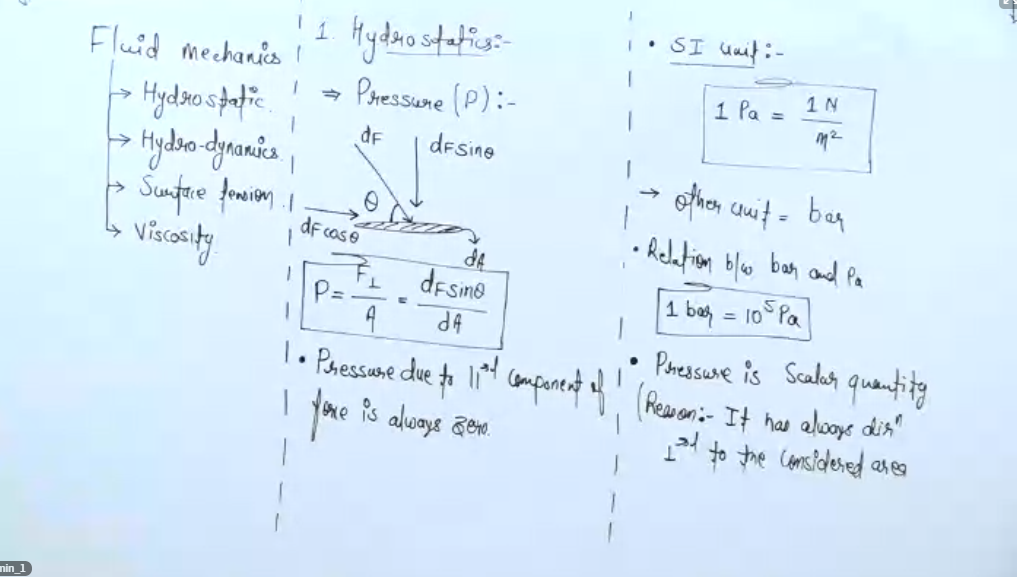 Fluid mechanics
→ Hydrostatic.
→ Hydro-dynamics.
→ Surface tension.
→ Viscosity.
1. Hydrostatics:-
⇒ Pressure (P):-
dF
dFsinθ
θ
dFcosθ
dA
P = F⊥/A = dFsinθ/dA
• Pressure due to ||ᵉˡ component of
force is always zero.
• SI unit:-
1 Pa = 1 N/m²
→ other unit = bar
• Relation b/w bar and Pa
1 bar = 10⁵ Pa
• Pressure is Scalar quantity
(Reason:- It has always dirⁿ
⊥ to the considered area
min_1